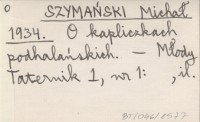 o
SZYMAŃSKI Michał
1934. O kapliczkach
podhalańskich. — Młody
Taternik 1, nr 1: , il.